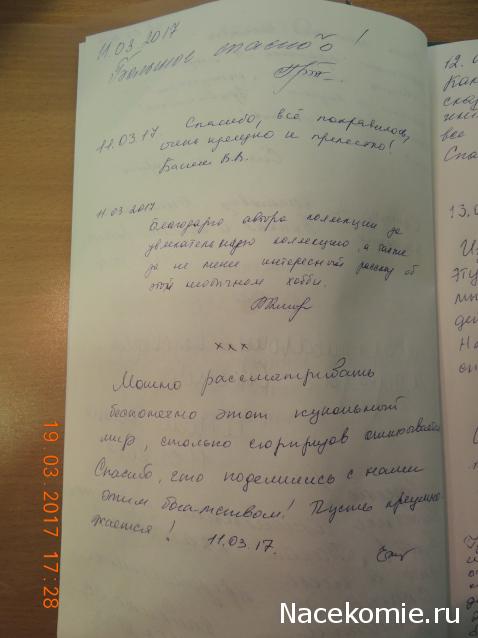 11.03.2017
Большое спасибо!
11.03.17. Спасибо, всё понравилось,
очень и прелестно!
В.В.
11.03.2017
Благодарю автора коллекции за
увлекательную коллекцию, а также
за не менее интересный рассказ об
этом необычном хобби.
×××
Можно рассматривать
бесконечно этот кукольный
мир, столько сюрпризов открывается
Спасибо, что поделились с нами
этим богатством! Пусть преумно
жается!
11.03.17.
12.
Как
все
Спа
13.0
эту
мы
19.03.2017 17:28
Nacekomie.ru